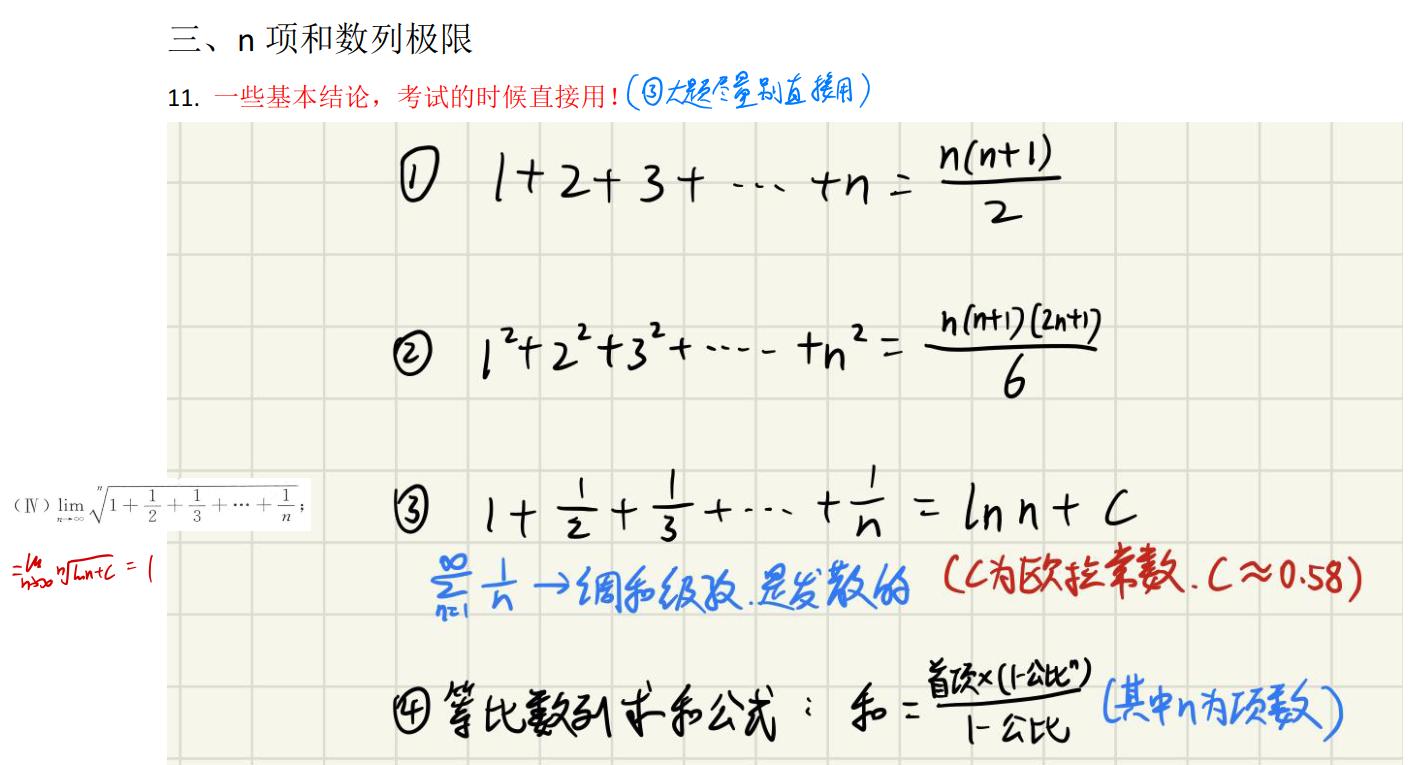 三、n 项和数列极限
11. 一些基本结论，考试的时候直接用!(③大题尽量别直接用)
① 1+2+3+ ··· +n = n(n+1)/2
② 1²+2²+3²+ ···· +n² = n(n+1)(2n+1)/6
（Ⅳ）lim n→∞ ⁿ√(1+1/2+1/3+···+1/n)；
= lim n→∞ ⁿ√(ln n+C) = 1
③ 1+1/2+1/3+ ··· +1/n = ln n + C
∞∑n=1 1/n →调和级数.是发散的 (C为欧拉常数.C≈0.58)
④等比数列求和公式：和=首项×(1-公比ⁿ)/1-公比 (其中n为项数)